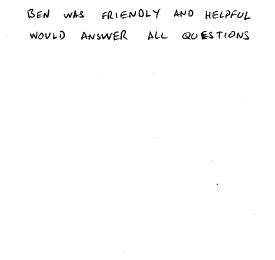 BEN WAS FRIENDLY AND HELPFUL
WOULD ANSWER ALL QUESTIONS